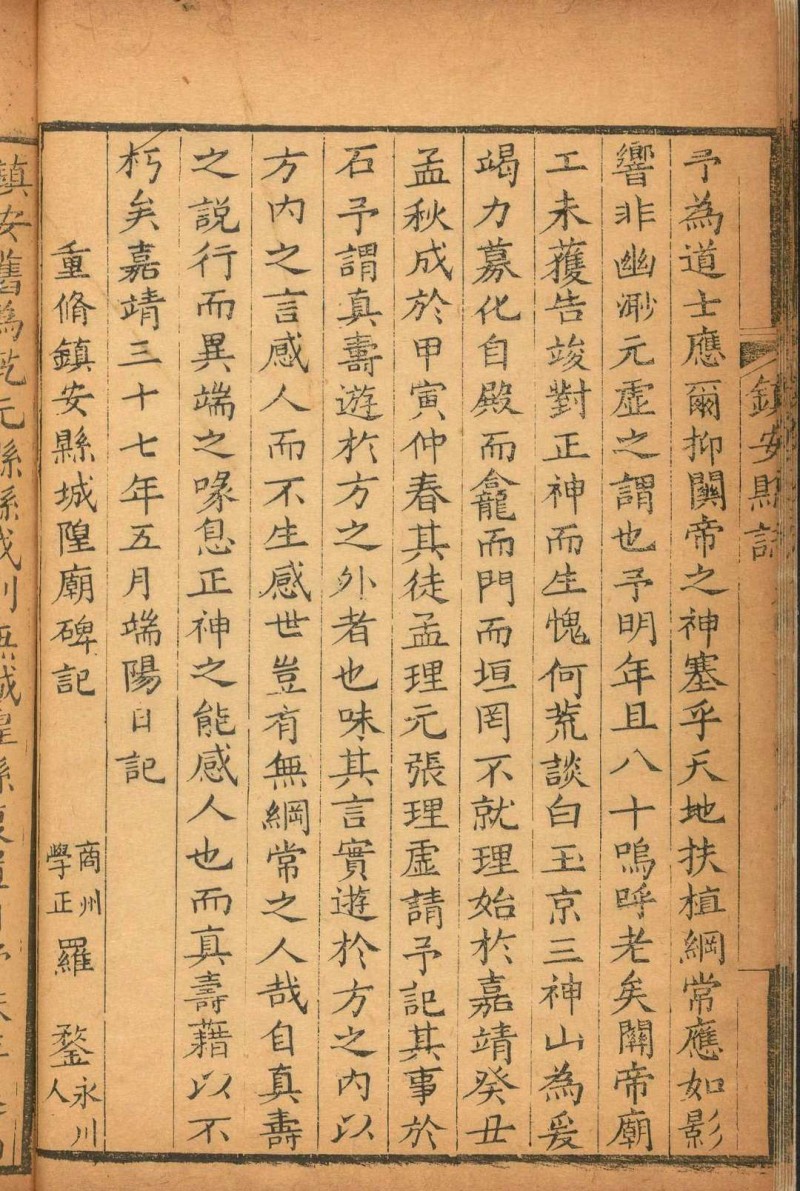 鎮安縣
予為道士應爾抑關帝之神塞乎天地扶植綱常應如影
響非幽渺元虛之謂也予明年且八十嗚呼老矣關帝廟
工未獲告竣對正神而生愧何荒談白玉京三神山為爰
竭力募化自殿而龕而門而垣罔不就理始於嘉靖癸丑
孟秋成於甲寅仲春其徒孟理元張理虛請予記其事於
石予謂真壽遊於方之外者也味其言實遊於方之內以
方內之言感人而不生感世豈有無綱常之人哉自真壽
之說行而異端之喙息正神之能感人也而真壽藉以不
朽矣嘉靖三十七年五月端陽日記
重脩鎮安縣城隍廟碑記 商州學正羅鍪永川人
鎮安舊為乾元縣縣